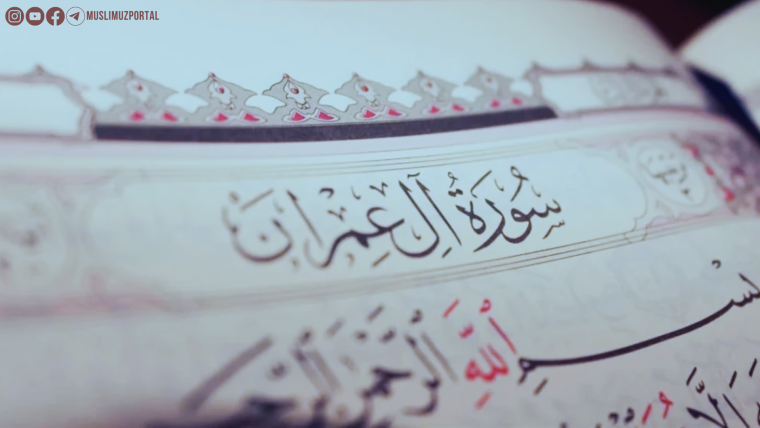 MUSLIMUZPORTAL
سُورَةُ آلِ عِمْرَانَ
بِسْمِ اللَّهِ الرَّحْمَٰنِ الرَّحِيمِ